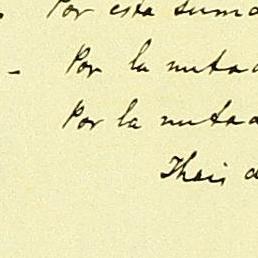 Por esta suma
- Por la mitad
Por la mitad
Thais d